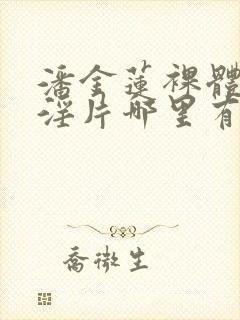 潘金蓮裸體
淫片哪里有
喬微生